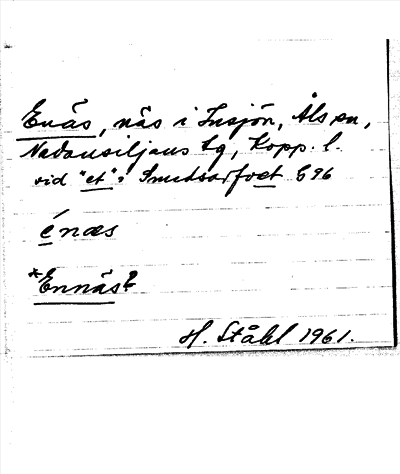 Enäs, näs i Insjön, Åls sn,
Nedansiljans tg, Kopp. l.
vid "et" i Smedsarfvet 696
énæs
*Ennäs?
H. Ståhl 1961.